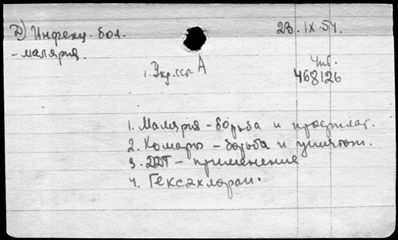 Р) Инфекц. бол. 23.IX.54.
- малярия.
1. Укр.сср А Чит.
468126
1. Малярия - борьба и профилак.
2. Комары - борьба и уничтож.
3. ДДТ - применение
4. Гексахлоран.